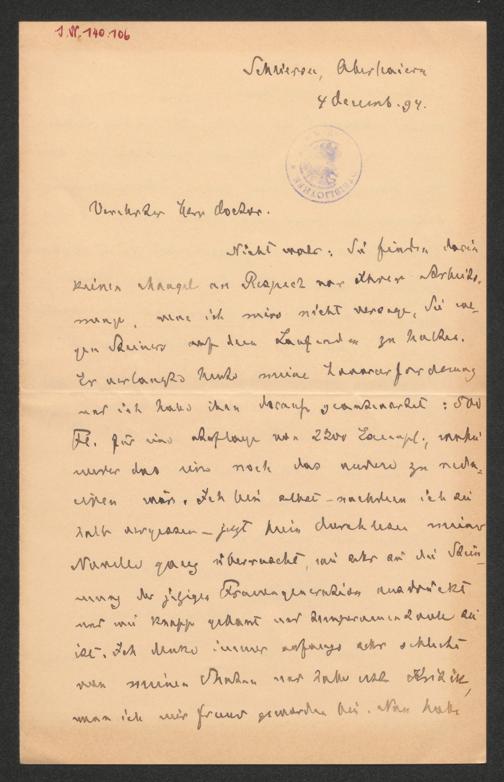 I.N. 140.106
Schliersee, Oberbaiern
4 Decemb. 94.
Verehrter Herr Doctor.
Nicht wahr: Sie finden darin
keinen Mangel an Respect vor Ihrer Arbeits-
menge, wenn ich mirs nicht versage, Sie we-
gen Steiners auf dem Laufenden zu halten.
Er verlangte heute meine Honorarforderung
und ich habe ihm darauf geantwortet: 500
Fl. für eine Auflage von 2200 Exempl.,
weder das eine noch das andere zu
wäre. Ich bin selbst – nachdem ich sie
halb vergessen – jetzt beim durchlesen meiner
Novelle ganz überrascht, wie sehr sie die Stim-
mung der jetzigen Frauengeneration ausdrückt
und wie knapp gebaut und temperamentvoll sie
ist. Ich denke immer anfangs sehr schlecht
von meinen Sachen und habe erst Kritik,
wenn ich mir fremd geworden bin. Nun habe